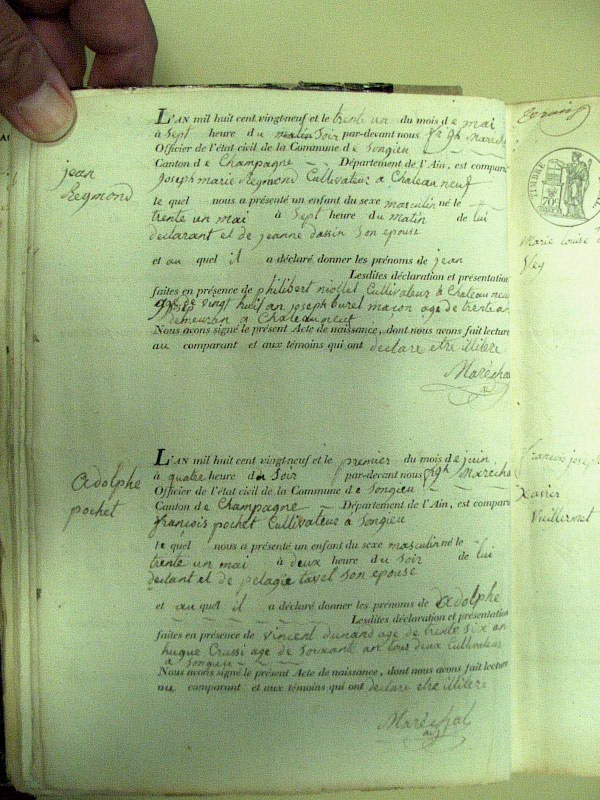 jean
Reymond
L'AN mil huit cent vingt-neuf et le trente un du mois de mai
à Sept heure du matin Soir par-devant nous Maréchal
Officier de l'état civil de la Commune de Songieu
Canton de Champagne Département de l'Ain, est comparu
Joseph marie Reymond Cultivateur a Chateauneuf
le quel nous a présenté un enfant du sexe masculin né le
trente un mai à Sept heure du matin de lui
déclarant et de jeanne dassin Son epouse
et au quel il a déclaré donner les prénoms de jean
Lesdites déclaration et présentation
faites en présence de philibert niollet Cultivateur a Chateauneuf
age de vingt huit an joseph burel maçon age de trente an
demeuran a Chateauneuf
Nous avons signé le présent Acte de naissance, dont nous avons fait lecture
au comparant et aux témoins qui ont declare etre illitere
Maréchal
Adolphe
pochet
L'AN mil huit cent vingt-neuf et le premier du mois de juin
à quatre heure du Soir par-devant nous Maréchal
Officier de l'état civil de la Commune de Songieu
Canton de Champagne Département de l'Ain, est comparu
françois pochet Cultivateur a Songieu
le quel nous a présenté un enfant du sexe masculin né le
trente un mai à deux heure du Soir de lui
declant et de pelagie tavel Son epouse
et au quel il a déclaré donner les prénoms de Adolphe
Lesdites déclaration et présentation
faites en présence de vincent dunand age de trente Six an
hugue Crussi age de Soixante an tous deux Cultivateurs
a Songieu
Nous avons signé le présent Acte de naissance, dont nous avons fait lecture
au comparant et aux témoins qui ont declare etre illitere
Maréchal
TIMBRE
Marie Louise
françois jose
Xavier
Vuillermet